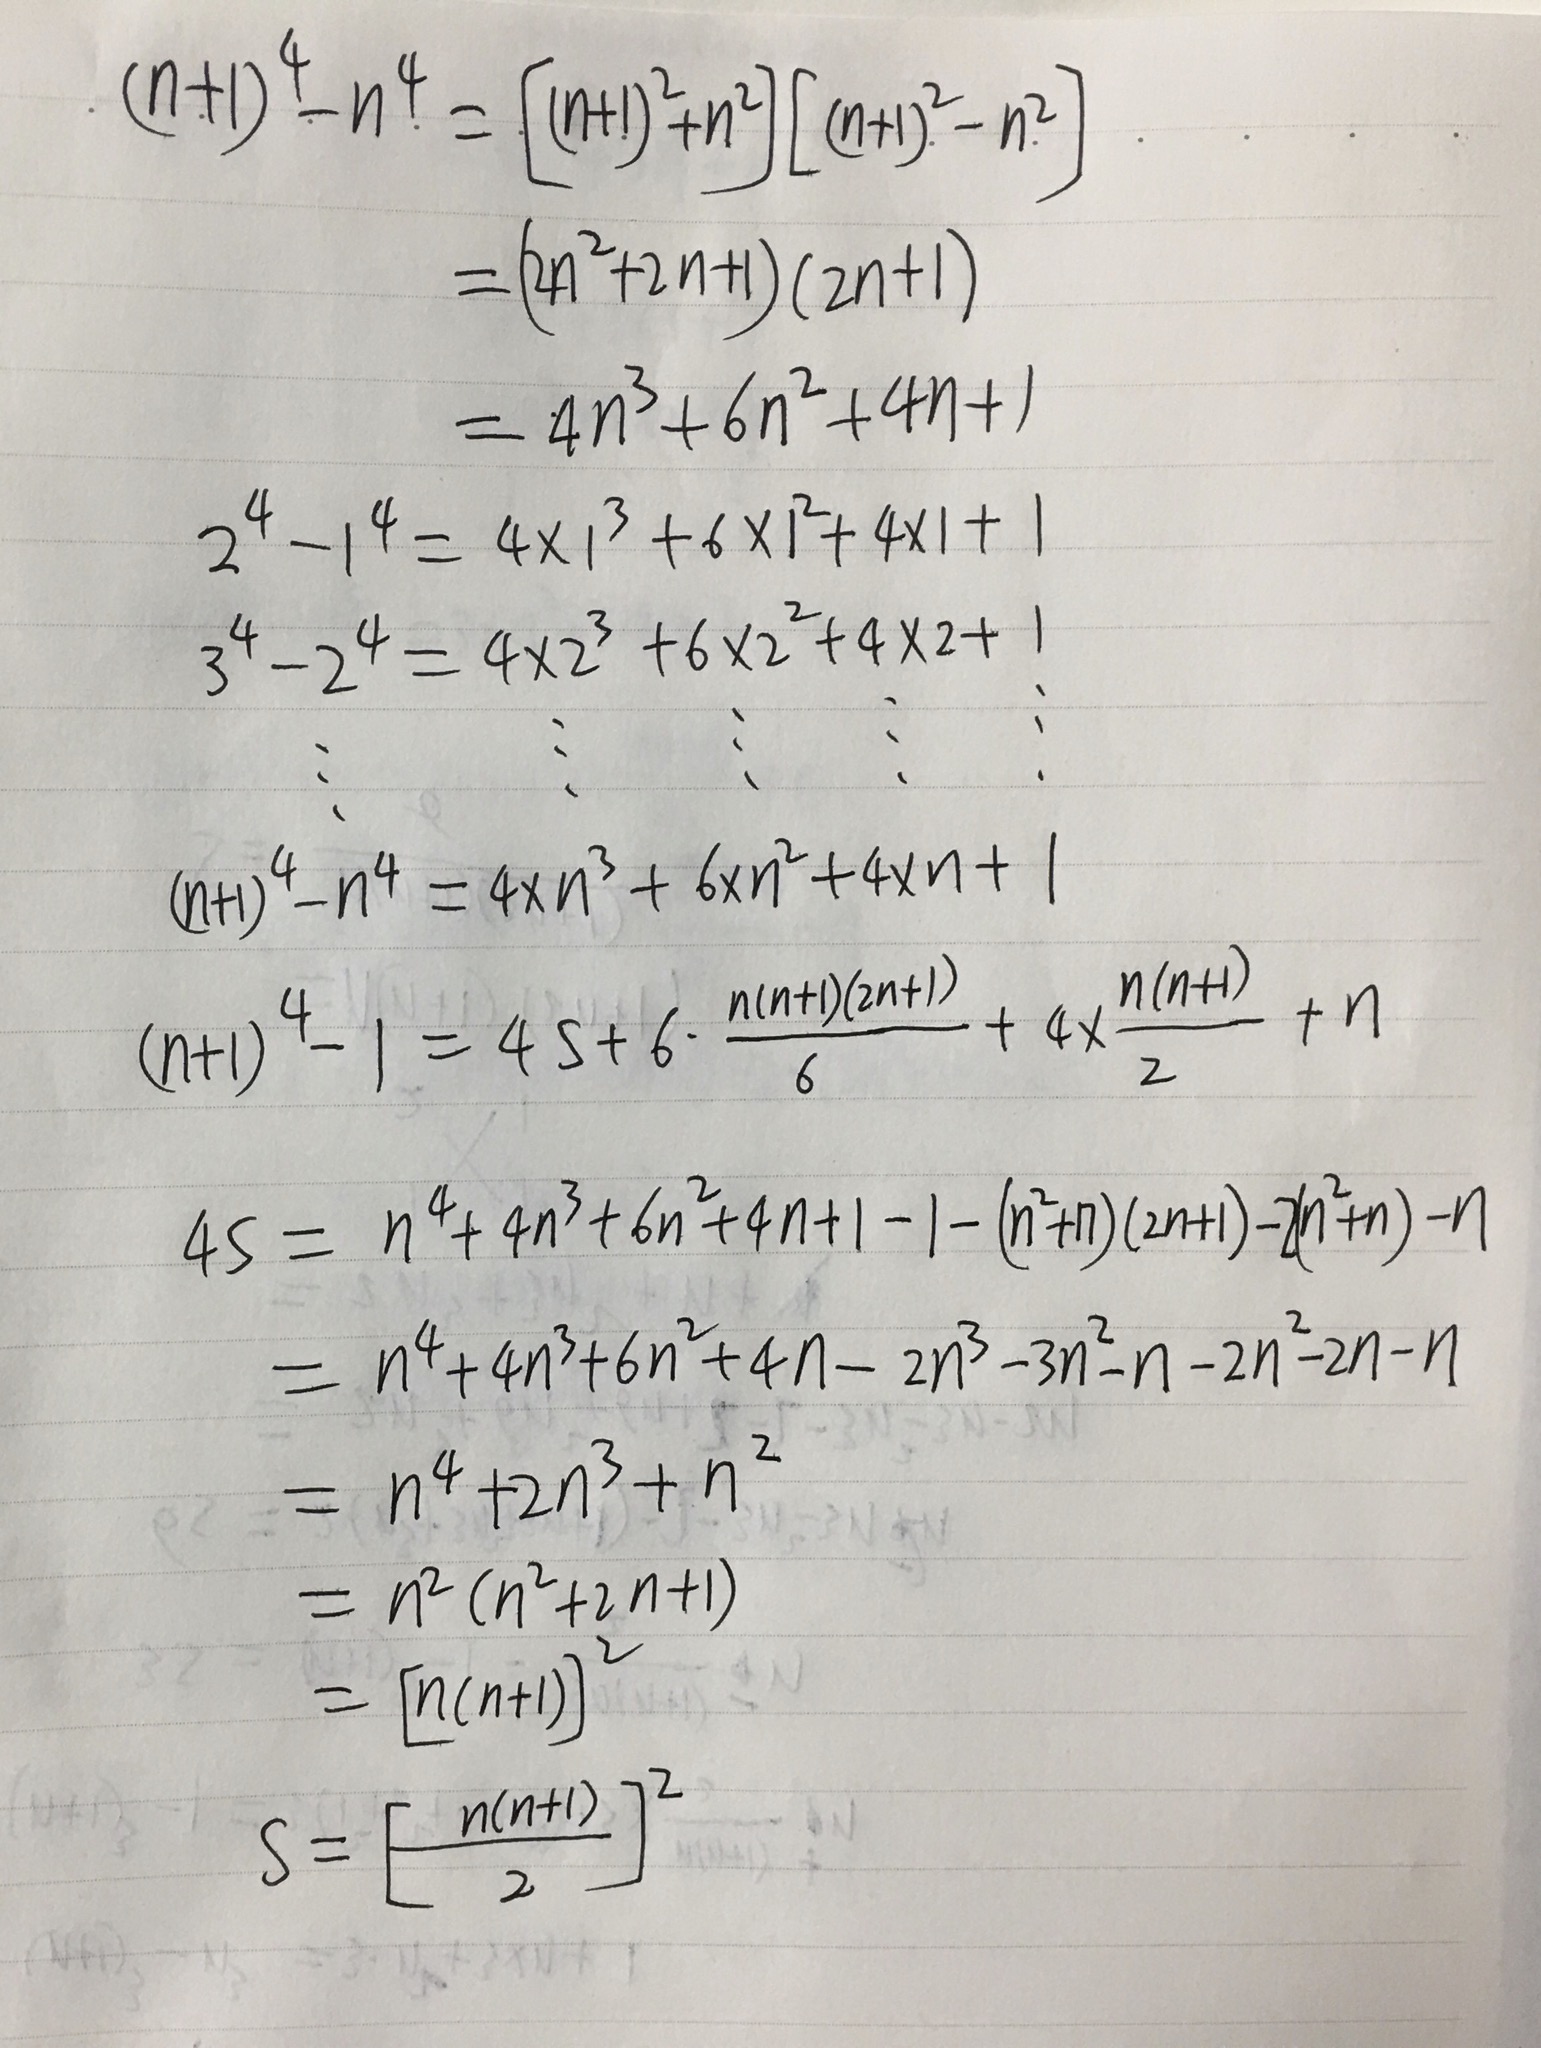 (n+1)⁴-n⁴ = [(n+1)²+n²][(n+1)²-n²]
=(2n²+2n+1)(2n+1)
= 4n³+6n²+4n+1
2⁴-1⁴= 4×1³+6×1²+4×1+1
3⁴-2⁴= 4×2³+6×2²+4×2+1
⋮ ⋮ ⋮ ⋮ ⋮
(n+1)⁴-n⁴ = 4×n³+6×n²+4×n+1
(n+1)⁴-1 = 4S+6·n(n+1)(2n+1)/6 + 4×n(n+1)/2 + n
4S = n⁴+4n³+6n²+4n+1-1-(n²+n)(2n+1)-2(n²+n)-n
= n⁴+4n³+6n²+4n-2n³-3n²-n-2n²-2n-n
= n⁴+2n³+n²
= n²(n²+2n+1)
= [n(n+1)]²
S=[n(n+1)/2]²